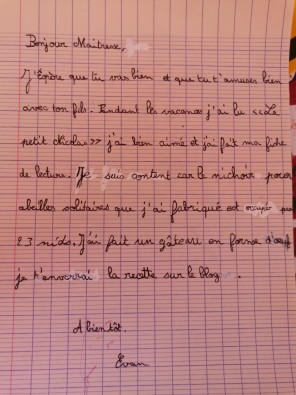 Bonjour Maitresse,
J'Espère que tu vas bien et que tu t'amuses bien
avec ton fils. Pendant les vacances j'ai lu «Le
petit Nicolas» j'ai bien aimé et j'ai fait ma fiche
de lecture. Je suis content car le nichoir pour
abeilles solitaires que j'ai fabriqué est occupé par
23 nids. J'ai fait un gâteau en forme d'oeuf
je t'enverrai la recette sur le blog.
A bientôt.
Evan